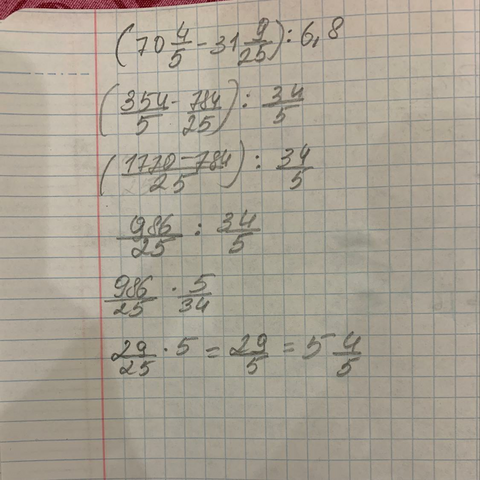 (70 4/5 - 31 9/25) : 6,8
(354/5 - 784/25) : 34/5
(1770-784/25) : 34/5
986/25 : 34/5
986/25 · 5/34
29/25 · 5 = 29/5 = 5 4/5